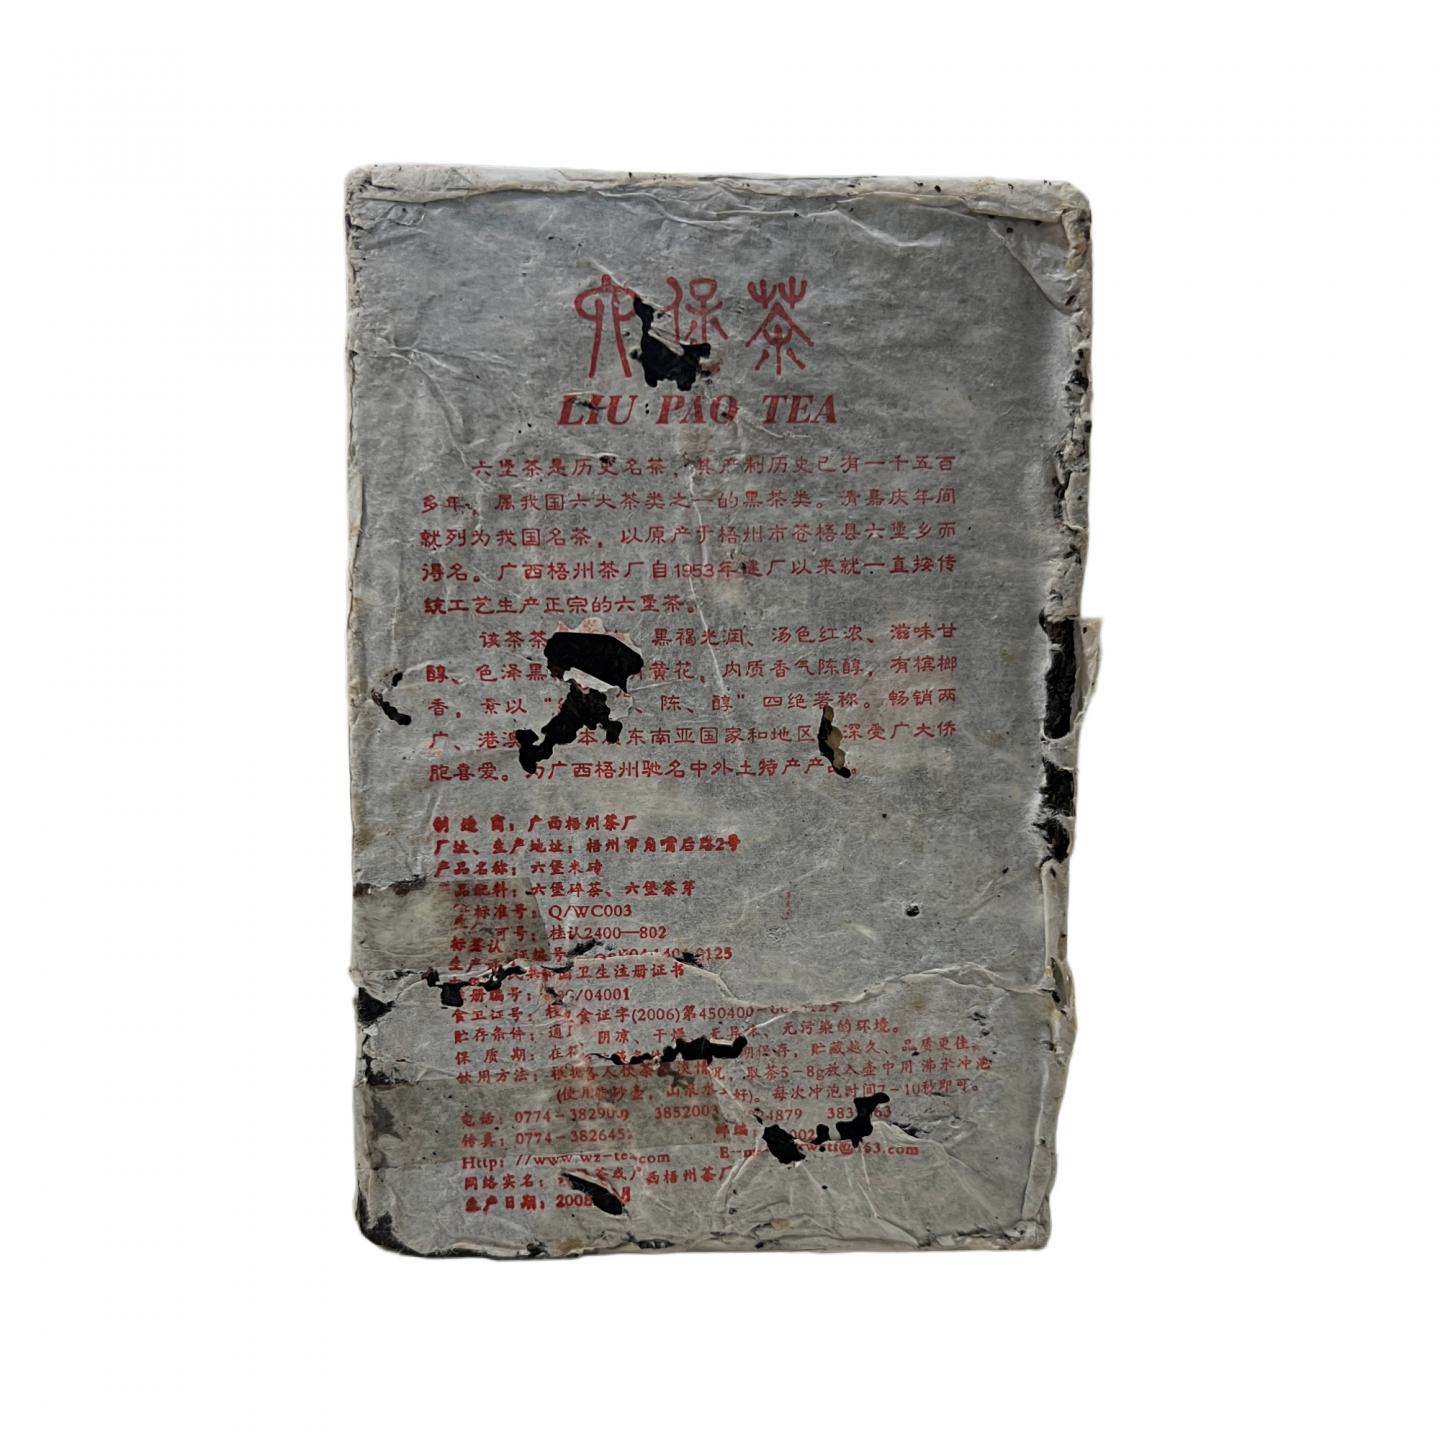 六保茶
LIU PAO TEA
六堡茶是历史名茶，其产制历史已有一千五百
多年、属我国六大茶类之一的黑茶类。清嘉庆年间
就列为我国名茶，以原产于梧州市苍梧县六堡乡而
得名。广西梧州茶厂自1953年建厂以来就一直按传
统工艺生产正宗的六堡茶。
该茶茶 黑褐光润、汤色红浓、滋味甘
醇、色泽黑 黄花，内质香气陈醇，有槟榔
香，素以“ 、陈、醇”四绝著称。畅销两
广、港澳 本 东南亚国家和地区 深爱广大侨
胞喜爱。为广西梧州驰名中外土特产产品。
制造商：广西梧州茶厂
厂址、生产地址：梧州市角嘴后路2号
产品名称：六堡米砖
品配料：六堡碎茶、六堡茶芽
标准号：Q/WC003
可号：桂认2400—802
生产 证编号 0125
国卫生注册证书
册编号： /04001
食卫证号：桂 食证字(2006)第450400-
贮存条件：通 阴凉、干燥 无异味、无污染的环境。
保质期：在 期保存，贮藏越久、品质更佳。
饮用方法：根据各人饮茶 浓情况，取茶5-8g放入壶中用沸水冲泡
(使用紫砂壶，山泉水 好)。每次冲泡时间7-10秒即可。
电话：0774-38290 9 3852003 4879 383 63
传真：0774-382645 邮编 002
Http://www.wz-tea.com E-m @163.com
网络实名： 茶或广西梧州茶厂
生产日期：2008 月